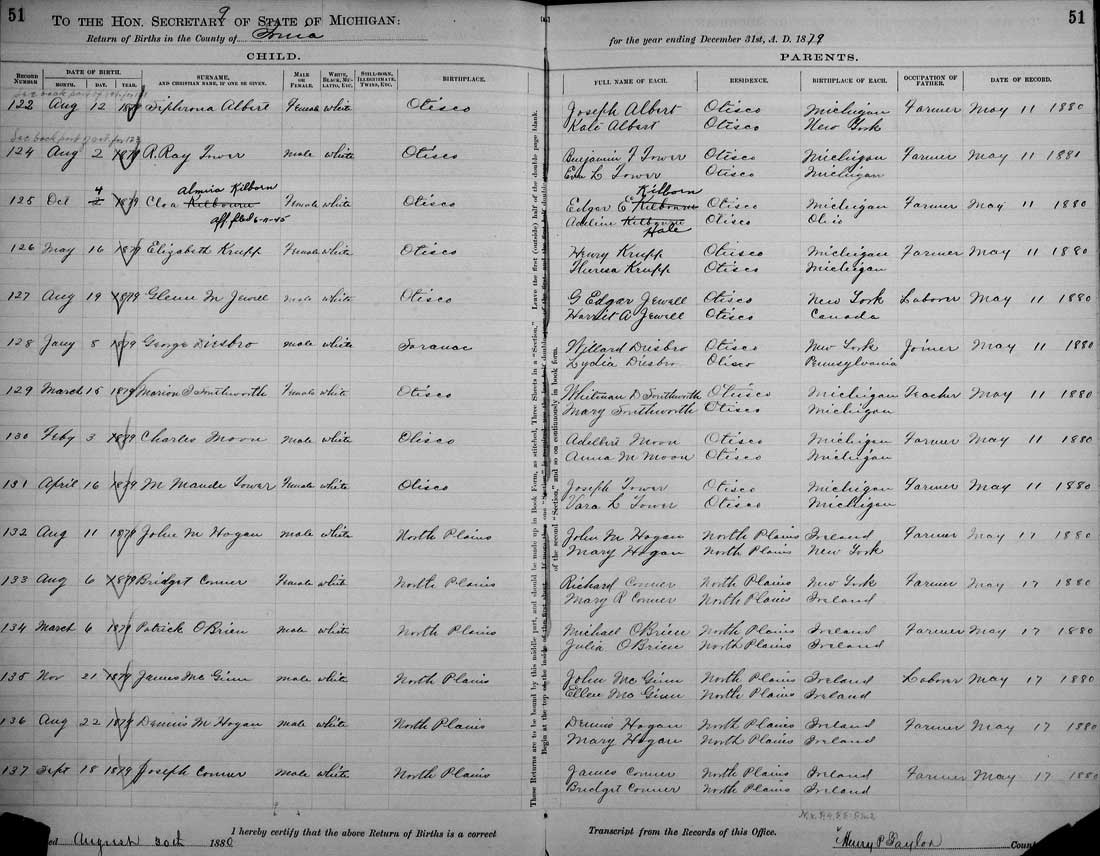 51
TO THE HON. SECRETARY OF STATE OF MICHIGAN:
9
Return of Births in the County of Ionia
for the year ending December 31st, A. D. 1879
51
CHILD.
PARENTS.
RECORD NUMBER
DATE OF BIRTH.
MONTH. DAY. YEAR.
SURNAME, AND CHRISTIAN NAME, IF ONE BE GIVEN.
MALE OR FEMALE.
WHITE, BLACK, MULATTO, ETC.
STILL-BORN, ILLEGITIMATE, TWINS, ETC.
BIRTHPLACE.
FULL NAME OF EACH.
RESIDENCE.
BIRTHPLACE OF EACH.
OCCUPATION OF FATHER.
DATE OF RECORD.
See book part of
122 Aug 12 1879 Albert Female white Otisco Joseph Albert Otisco Michigan Farmer May 11 1880
Kate Albert Otisco New York
See book part of for 123
124 Aug 2 1879 R. Ray Tower male white Otisco Benjamin F Tower Otisco Michigan Farmer May 11 1881
Eva L Tower Otisco Michigan
4 Almira Kilborn Kilborn
125 Oct 2 1879 Cloa Kilbourne Female white Otisco Edgar E Kilbourne Otisco Michigan Farmer May 11 1880
aff filed 6-11-45 Adeline Kilbourne Otisco Ohio
Hale
126 May 16 1879 Elizabeth Krupp Female white Otisco Henry Krupp Otisco Michigan Farmer May 11 1880
Theresa Krupp Otisco Michigan
127 Aug 19 1879 Glenn M Jewell male white Otisco G Edgar Jewell Otisco New York Laborer May 11 1880
Harriet A Jewell Otisco Canada
128 Jany 8 1879 George Diesbro male white Saranac Willard Diesbro Otisco New York Joiner May 11 1880
Lydia Diesbro Otisco Pennsylvania
129 March 15 1879 Marion I Southworth Female white Otisco Whitman D Southworth Otisco Michigan Teacher May 11 1880
Mary Southworth Otisco Michigan
130 Feby 3 1879 Charles Moon male white Otisco Adelbert Moon Otisco Michigan Farmer May 11 1880
Anna M Moon Otisco Michigan
131 April 16 1879 M Maude Tower Female white Otisco Joseph Tower Otisco Michigan Farmer May 11 1880
Vara L Tower Otisco Michigan
132 Aug 11 1879 John M Hogan male white North Plains John M Hogan North Plains Ireland Farmer May 17 1880
Mary Hogan North Plains New York
133 Aug 6 1879 Bridget Conner Female white North Plains Richard Conner North Plains New York Farmer May 17 1880
Mary R Conner North Plains Ireland
134 March 6 1879 Patrick OBrien male white North Plains Michael OBrien North Plains Ireland Farmer May 17 1880
Julia OBrien North Plains Ireland
135 Nov 21 1879 James Mc Ginn male white North Plains John Mc Ginn North Plains Ireland Laborer May 17 1880
Ellen Mc Ginn North Plains Ireland
136 Aug 22 1879 Dennis M Hogan male white North Plains Dennis Hogan North Plains Ireland Farmer May 17 1880
Mary Hogan North Plains Ireland
137 Sept 18 1879 Joseph Conner male white North Plains James Conner North Plains Ireland Farmer May 17 1880
Bridget Conner North Plains Ireland
These Returns are to be bound by this middle part, and should be made up in Book Form, as stitched, Three Sheets in a "Section." Leave the first (outside) half of the double page blank.
of the second "Section," and so on continuously in book form.
I hereby certify that the above Return of Births is a correct
Transcript from the Records of this Office.
ed August 30th 1880
Henry P Taylor
Count